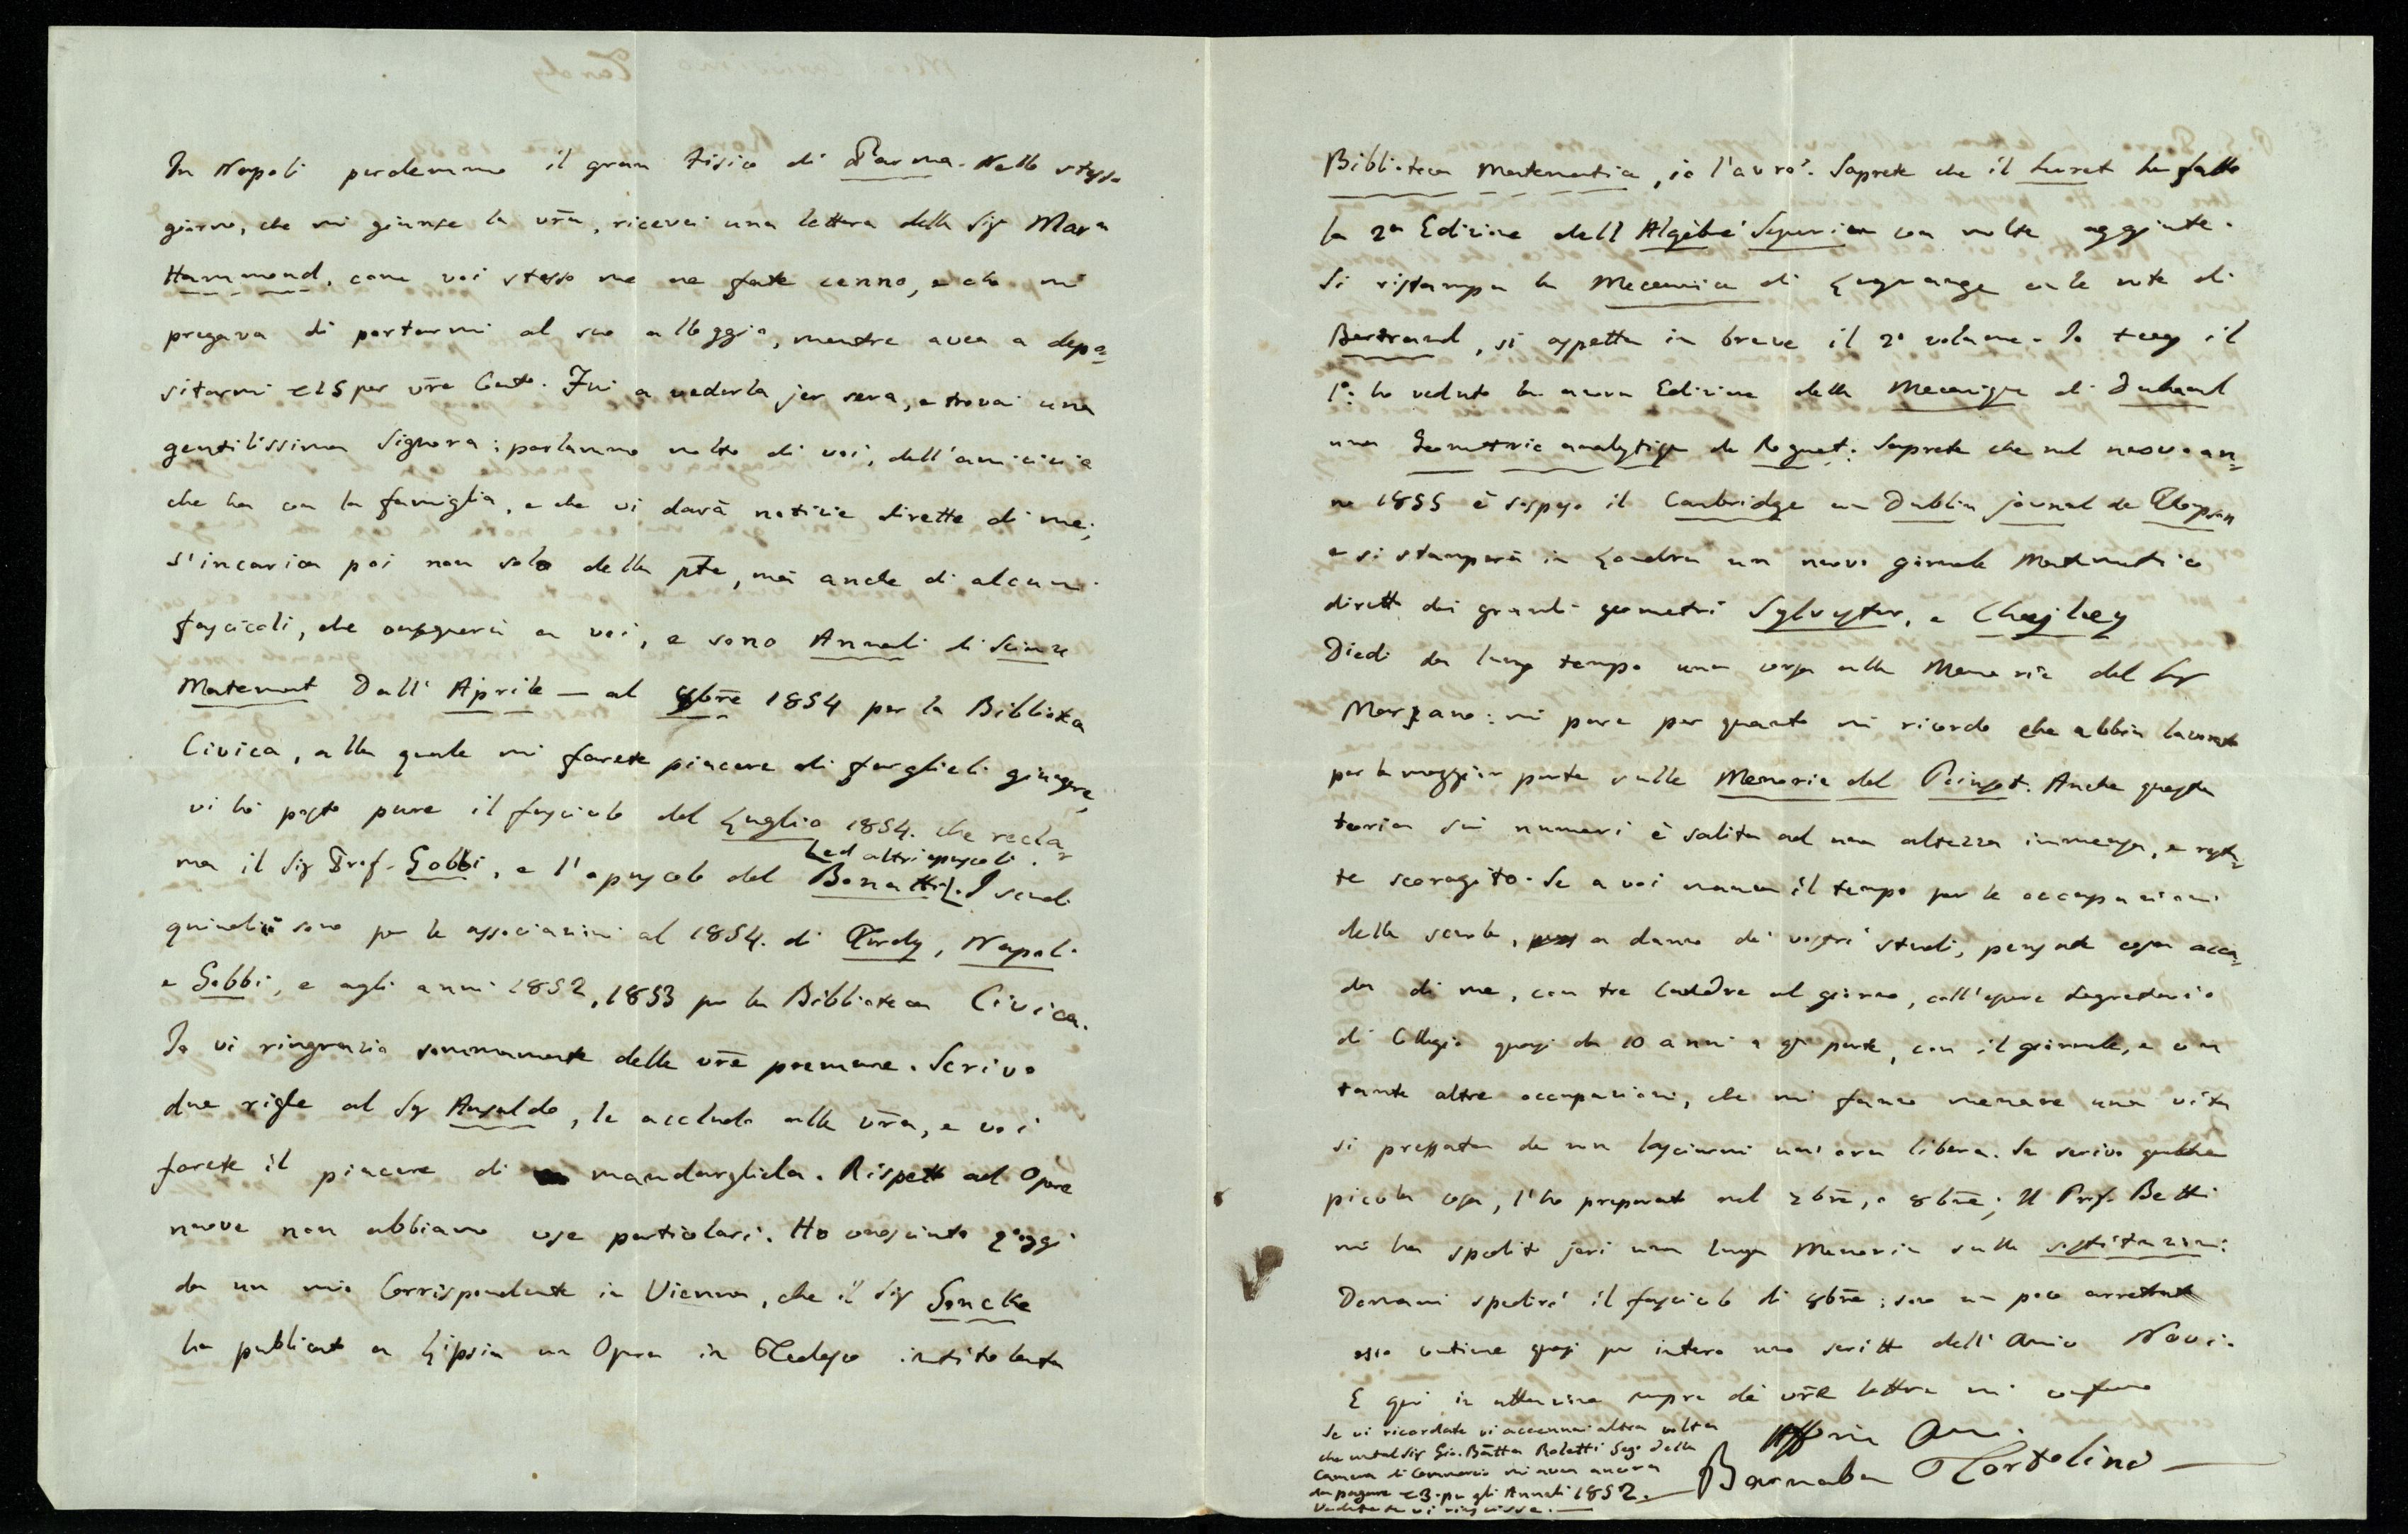 In Napoli perdemmo il gran fisico di Parma. Nello stesso
giorno, che mi giunse la vr̃a, ricevei una lettera della Sigᵃ Mara
Hammond, come voi stesso me ne fate cenno, e che mi
pregava di portarmi al suo alloggio, mentre avea a depo=
sitarmi 15 per vr̃o Conto. Fui a vederla jer sera, e trovai una
gentilissima Signora: parlammo molto di voi, dell'amicizia
che ha con la famiglia, e che vi darà notizie dirette di me;
s'incarica poi non solo della pñte, mà anche di alcuni
fascicoli, che consegnerà a voi, e sono Annali di Scienze
Matemat Dall' Aprile — al 8br̃e 1854 per la Biblioteca
Civica, alla quale mi farete piacere di farglieli giungere,
vi hò posto pure il fascicolo del Luglio 1854. che recla=
ma il Sig Prof. Gobbi, e l'opuscolo del Bonatti
ed altri opuscoli. I scudi
quindici sono per le associazioni al 1854. di Tardy, Napoli
e Gobbi, e agli anni 1852, 1853 per la Biblioteca Civica.
Io vi ringrazio sommamente delle vr̃e premure. Scrivo
due righe al Sig Ansaldo, le accludo alla vr̃a, e voi
farete il piacere di mandargliela. Rispetto ad Opere
nuove non abbiamo cose particolari. Ho conosciuto oggi
da un mio Corrispondente in Vienna, che il Sig Soncke
ha publicato a Lipsia un Opera in Tedesco intitolata
Biblioteca Matematica, io l'avrò. Saprete che il Serret ha fatto
la 2ᵃ Edizione dell Algèbre Superieu con molte aggiunte.
Si ristampa la Meccanica di Lagrange colle note di
Bertrand, si aspetta in breve il 2º volume. Io tengo il
1º: ho veduto la nuova Edizione della Mecanique di Duhamel
una Geometrie analytique de Roguet: Saprete che nel nuovo an=
no 1855 è sospeso il Cambridge an Dublin journal de Thompson
e si stamperà in Londra un nuovo giornale Matematico
diretto dai grandi geometri Sylvester, e Chayley
Diedi da lungo tempo una corsa alla Memoria del Sig
Marzano: mi pare per quanto mi ricordo che abbia lavorato
per la maggior parte sulla Memoria del Poinsot. Anche questa
teoria dei numeri è salita ad una altezza immensa, e resta=
te scoragito. Se a voi manca il tempo per le occupazioni
della scuola, a danno dei vostri studi, pensate cosa acca=
da di me, con tre Cattedre al giorno, coll'essere Segretario
di Collegio quasi da 10 anni a qta parte, con il giornale, e con
tante altre occupazioni, che mi fanno menare una vita
si pressata da non lasciarmi un'ora libera. Se scrivo qualche
picola cosa, l'ho preparata nel 7br̃e, e 8br̃e; Il Prof. Betti
mi ha spedito jeri una lunga Memoria sulle sostituzioni:
Domani spedirò il fascicolo di 9br̃e: sono un poco arretrato
esso contiene quasi per intero uno scritto dell' Amico Novi.
E qui in attenzione sempre di vr̃e lettere mi confermo
Affmo Amico
Barnaba Tortolini
Se vi ricordate vi accennai altra volta
che un tal Sig Gio. Bãtta Roletti Segº della
Camera di Commercio mi avea ancora
da pagare 3. per gli Annali 1852.
Vedete se vi riuscisse.